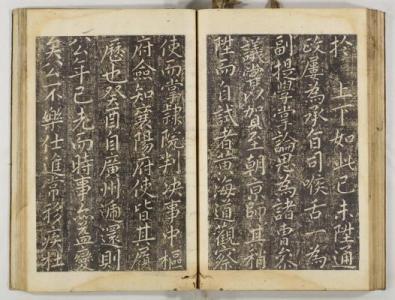 於 上下如此己未陞通
政屢爲承旨司喉舌一爲
副提學掌論思爲諸曹參
議常以賀至朝京師其稍
陞而自試者黃海道觀察
使而掌隸院判決事中樞
府僉知襄陽府使皆其履
歷也癸酉自廣州遞還則
公年已老而時事益變
矣公不樂仕進常移疾杜